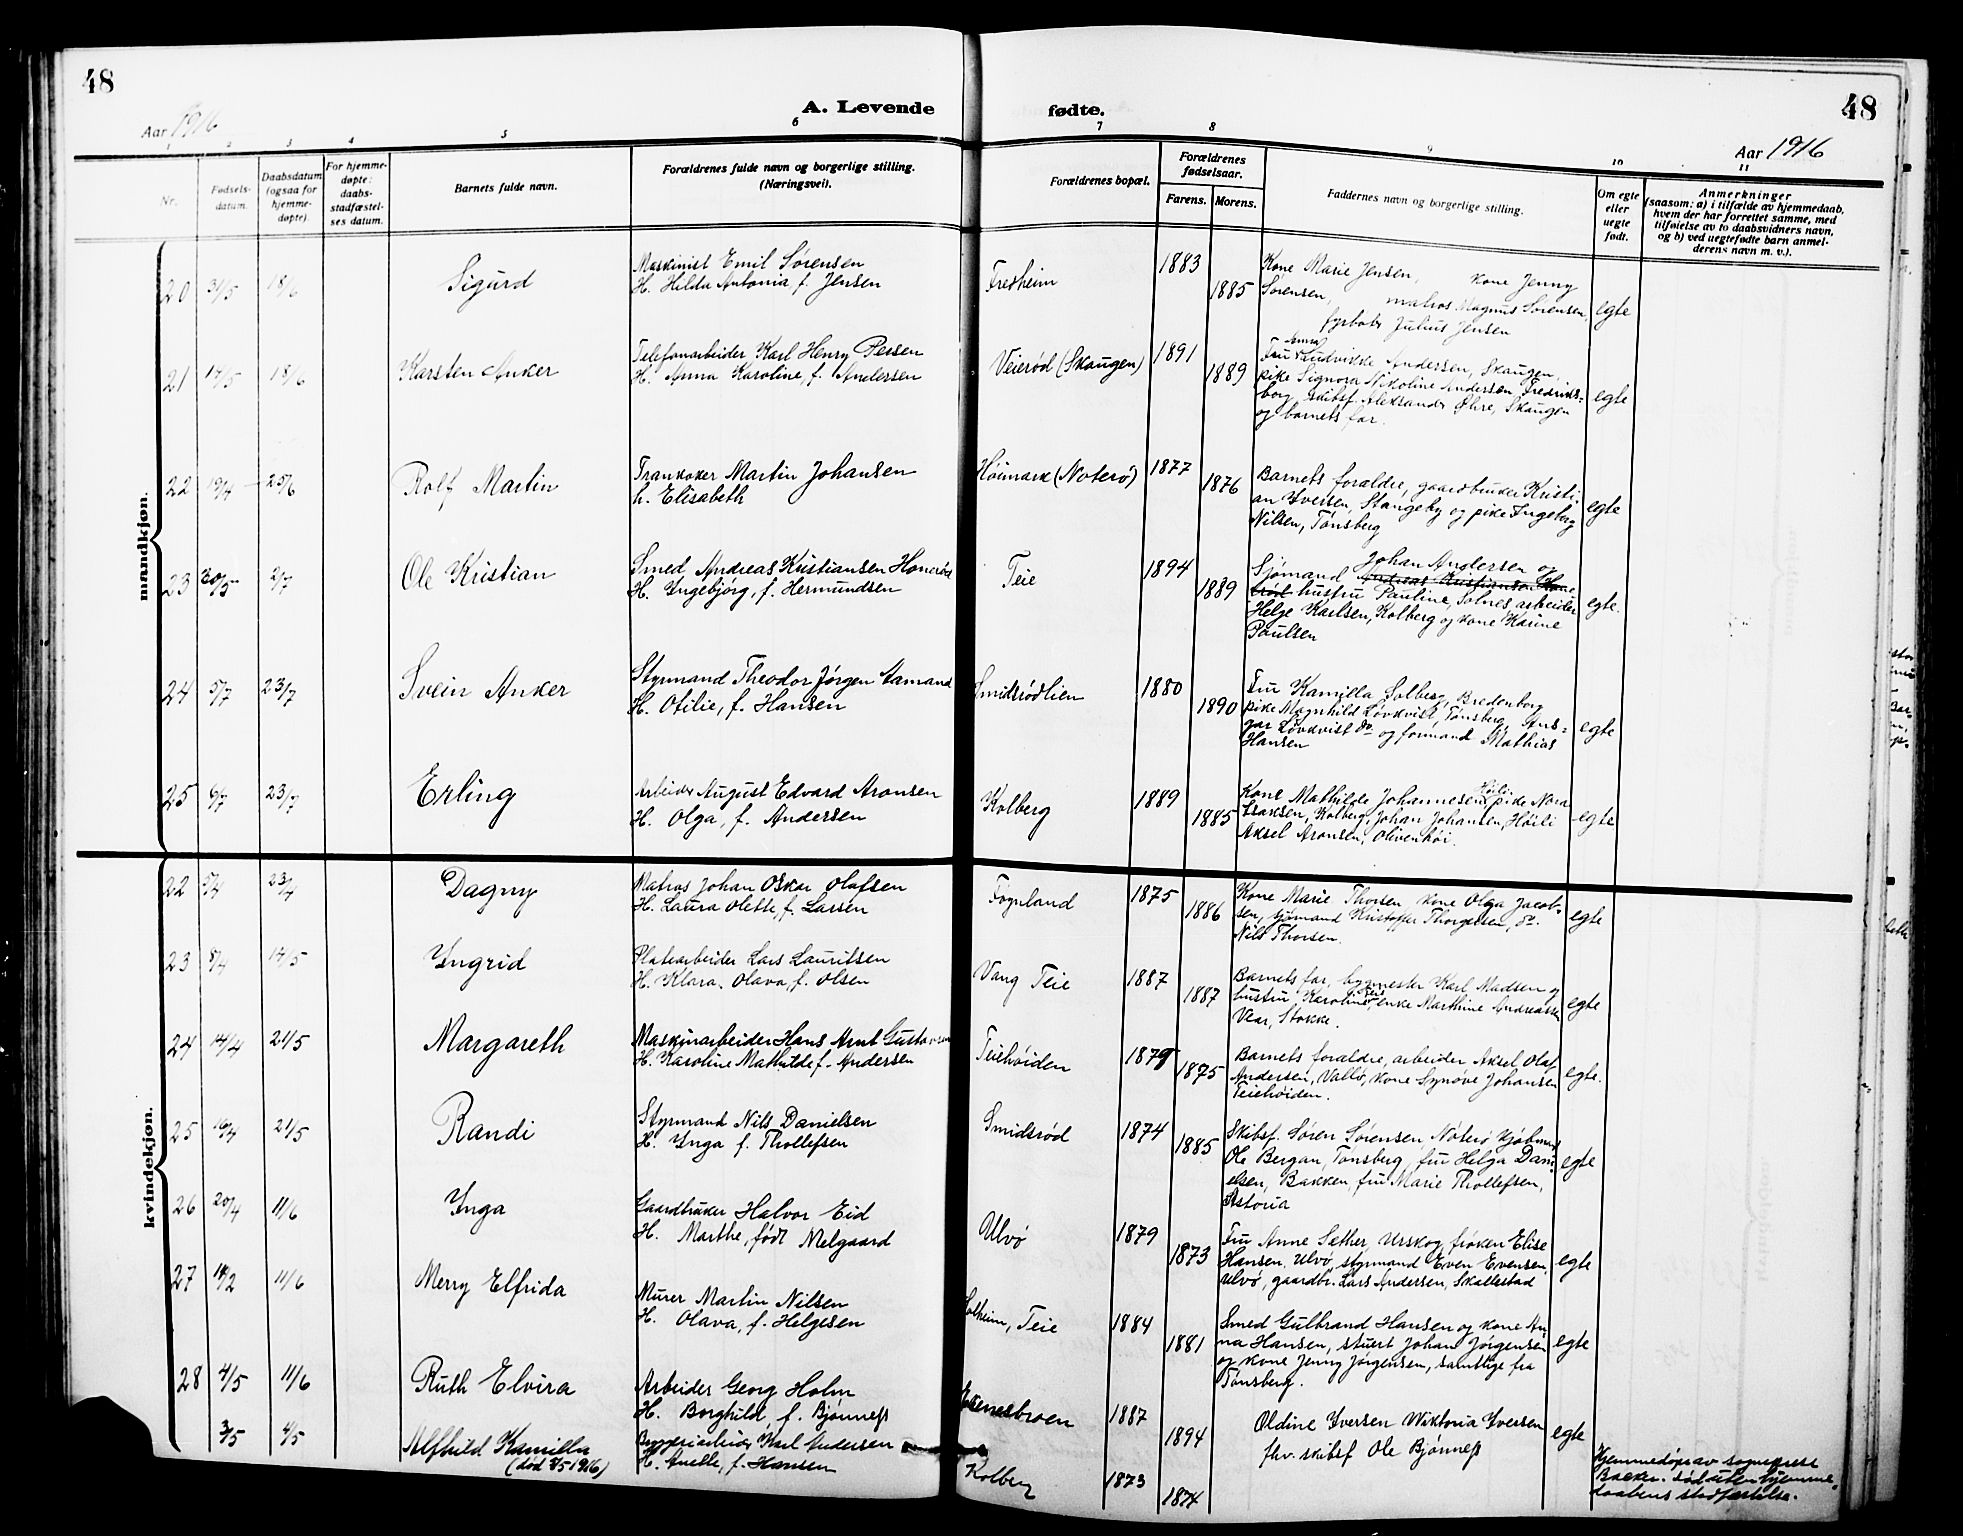 48
A. Levende
fødte.
48
Aar 1916
Aar 1916
1 2 3 4 5 6 7 8 9 10 11
Nr.
Fødsels-
datum.
Daabsdatum
(ogsaa for
hjemme-
døpte).
For hjemme-
døpte:
daabs-
stadfæstel-
ses datum.
Barnets fulde navn.
Forældrenes fulde navn og borgerlige stilling.
(Næringsvei).
Forældrenes bopæl.
Forældrenes
fødselsaar.
Farens. Morens.
Faddernes navn og borgerlige stilling.
Om egte
eller
uegte
født.
Anmerkninger
(saasom: a) i tilfælde av hjemmedaab,
hvem der har forrettet samme, med
tilføielse av to daabsvidners navn,
og b) ved uegtefødte barn anmel-
derens navn m. v.).
mandkjøn.
20 31/5 18/6 Sigurd
Maskinist Emil Sørensen
H. Hilda Antonia f. Jensen
Fredheim 1883 1885
Kone Marie Jensen, kone Jenny
Sørensen, matros Magnus Sørensen,
fyrbøter Julius Jensen
egte
21 17/5 18/6 Karsten Anker
Telefonarbeider Karl Henry Persen
H. Anna Karoline, f. Andersen
Veierød (Skaugen) 1891 1889
Fru Anna Ludvikke Andersen, Skaugen,
pike Signora Nikoline Andersen Fredriks-
borg, skibsf. Aleksander Øhre, Skaugen
og barnets far.
egte
22 19/4 25/6 Rolf Martin
Trankoker Martin Johansen
h. Elisabeth
Høimark (Nøterø) 1877 1876
Barnets forældre, gaardbruker Kristi-
an Iversen, Stangeby og pike Ingeborg
Nilsen, Tønsberg
egte
23 20/5 2/7 Ole Kristian
Smed Andreas Kristiansen Honerød
H. Ingebjørg, f. Hermundsen
Teie 1894 1889
Johan Andersen og
Sjømand Andreas Kristiansen Hone
rød hustru Pauline, Solnes, arbeider
Helge Karlsen, Kolberg og kone Karine
Paulsen
egte.
24 5/7 23/7 Svein Anker
Styrmand Theodor Jørgen Aamand
H. Otilie, f. Hansen
Smidsrødlien 1880 1890
Fru Kamilla Solberg, Bredenborg
pike Magnhild Løvkvist, Tønsberg, Ans-
gar Løvkvist do og formand Mathias
Hansen
egte
25 6/7 23/7 Erling
Arbeider August Edvard Aronsen
H. Olga, f. Andersen
Kolberg 1889 1885
Kone Mathilde Johannesen Høili pike Nora
Isaksen, Kolberg, Johan Johansen, Høili
Aksel Aronsen, Olivenhøi.
egte
kvindekjøn.
22 5/4 23/4 Dagny
Matros Johan Oskar Olafsen
H. Laura Olette, f. Larsen
Føynland 1875 1886
Kone Marie Thorsen kone Olga Jacob-
sen, sjømand Kristoffer Thorgersen, do.
Nils Thorsen.
egte
23 8/4 14/5 Yngrid
Platearbeider Lars Lauritsen
H. Klara Olava, f. Olsen
Vang Teie 1887 1887
Barnets far, bygmester Karl Madsen og
hustru Karoline, Teie, enke Marthine Andreassen
Vear, Stokke.
egte
24 14/4 21/5 Margareth
Maskinarbeider Hans Arnt Gustavsen
H. Karoline Mathilde f. Andersen
Teiehøiden 1879 1875
Barnets forældre, arbeider Aksel Olaf
Andersen, Vallø, kone Synøve Johansen
Teiehøiden.
egte.
25 16/4 21/5 Randi
Styrmand Nils Danielsen
H. Ynga f. Thollefsen
Smidsrød 1874 1885
Skibsf. Søren Sørensen, Nøterø kjøbmand
Ole Bergan, Tønsberg, fru Helga Dani-
elsen, Bakken, fru Marie Thollefsen,
Astoria
egte
26 20/4 11/6 Ynga
Gaardbruker Halvor Eid
H. Marthe, født Melgaard
Ulvø 1879 1873
Fru Anne Sæther, Urskog, frøken Elise
Hansen, Ulvø, styrmand Even Evensen,
Ulvø, gaardbr. Lars Andersen, Skallestad
egte
27 14/2 11/6 Merry Elfrida
Murer Martin Nilsen
H. Olava, f. Helgesen
Solheim, Teie 1884 1881
Smed Gulbrand Hansen og kone An-
na Hansen, stuert Johan Jørgensen
og kone Jenny Jørgensen, samtlige fra
Tønsberg.
egte
28 4/5 11/6 Ruth Elvira
Arbeider Georg Holm
H. Borghild, f. Bjønness
Ekenesbroen 1887 1894
Oldine Iversen Wiktoria Iversen
fhv. skibsf Ole Bjønness
egte
3/5 4/5 Alfhild Kamilla
(død 7/5 1916)
Bryggeriarbeider Karl Andersen
H. Anette, f. Hansen
Kolberg 1873 1874
Hjemmedøpt av sogneprest
Backer. Død uten hjemme-
daabens stadfæstelse.